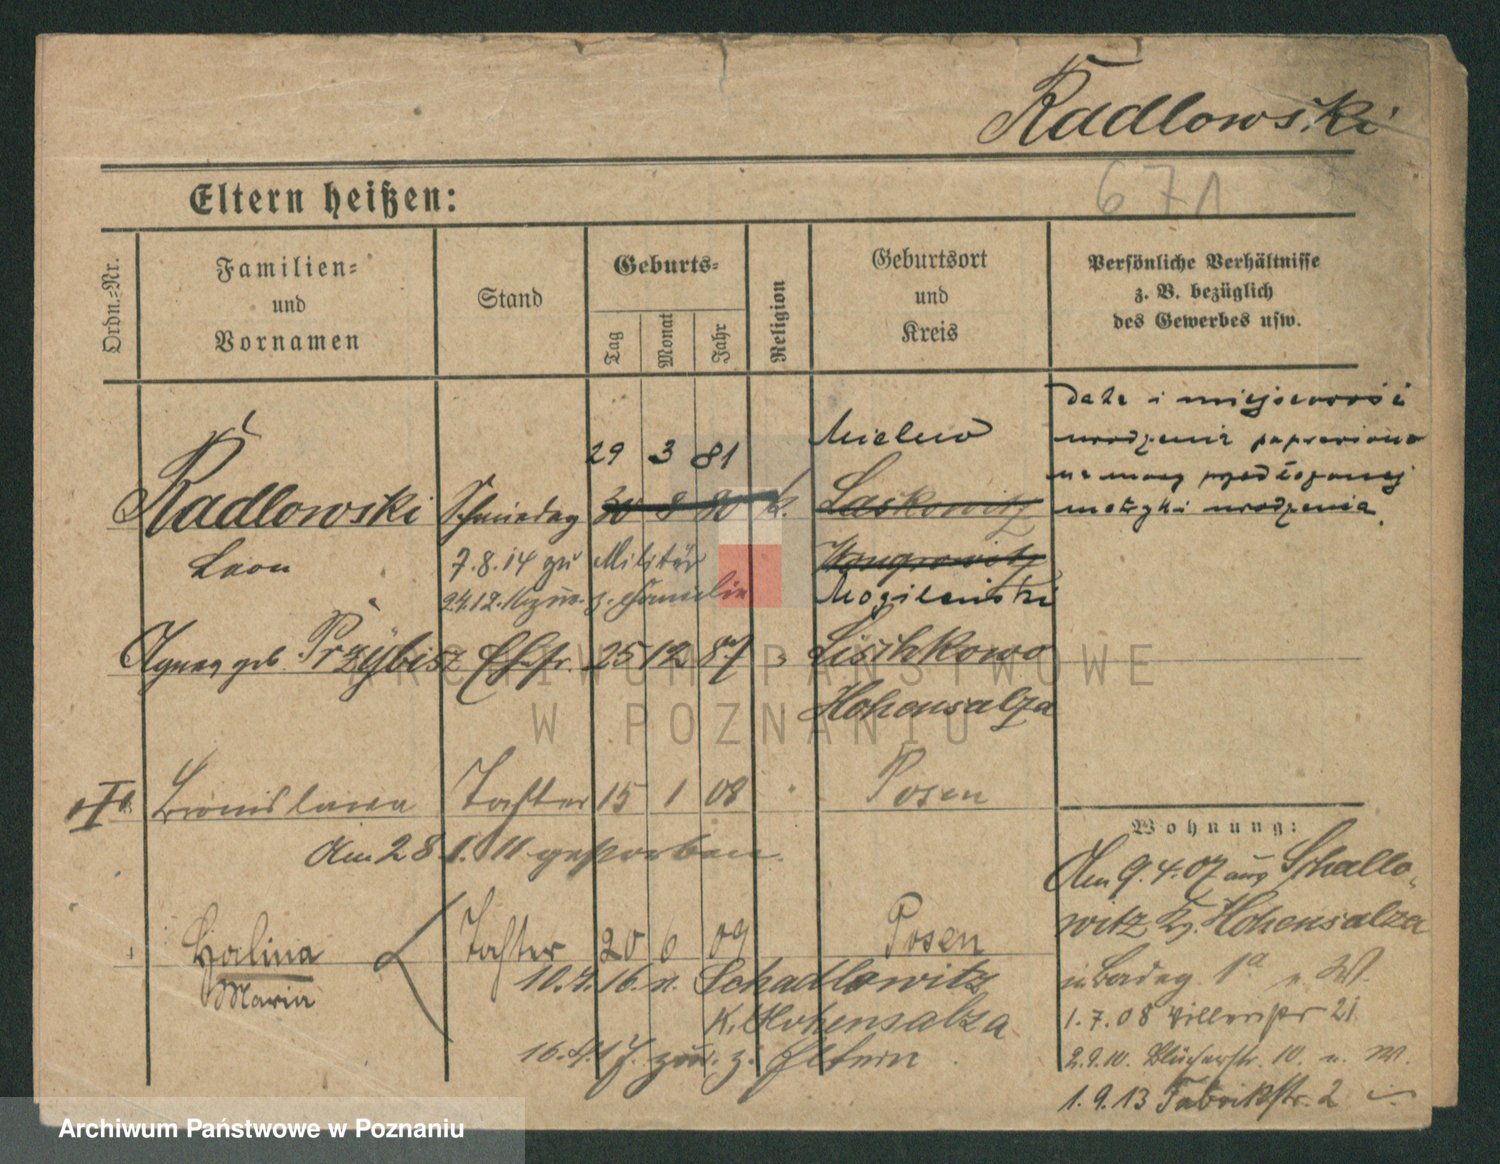 Radlowski
671
Eltern heißen:
Ordn.-Nr.
Familien-
und
Vornamen
Stand
Geburts-
Tag
Monat
Jahr
Religion
Geburtsort
und
Kreis
Persönliche Verhältnisse
z. B. bezüglich
des Gewerbes usw.
Radlowski
Leon
29 3 81
30 8 80 k.
Mielno
Laskowitz
Wongrowitz
Mogilenski
data i miejscowość
urodzenia poprawiono
na mocy przedłożonej
metryki urodzenia.
7.8.14 zu Militär
24.12. z. Familie
Agnes geb. Przybisz Ehfr. 25 12 87
Lischkowo
Hohensalza
Bronislawa Tochter 15 1 08 Posen
Am 28.1.11 gestorben.
Halina Tochter 20 6 09 Posen
Maria
10.7.16. n. Schadlowitz
K. Hohensalza
16.4.17. zur. z. Eltern
Wohnung:
Am 9.4.07 aus Schallo-
witz K. Hohensalza
1a W.
1.7.08 21
2.9.10. Blücherstr. 10. W.
1.9.13 Fabrikstr. 2
ARCHIWUM PAŃSTWOWE
W POZNANIU
Archiwum Państwowe w Poznaniu